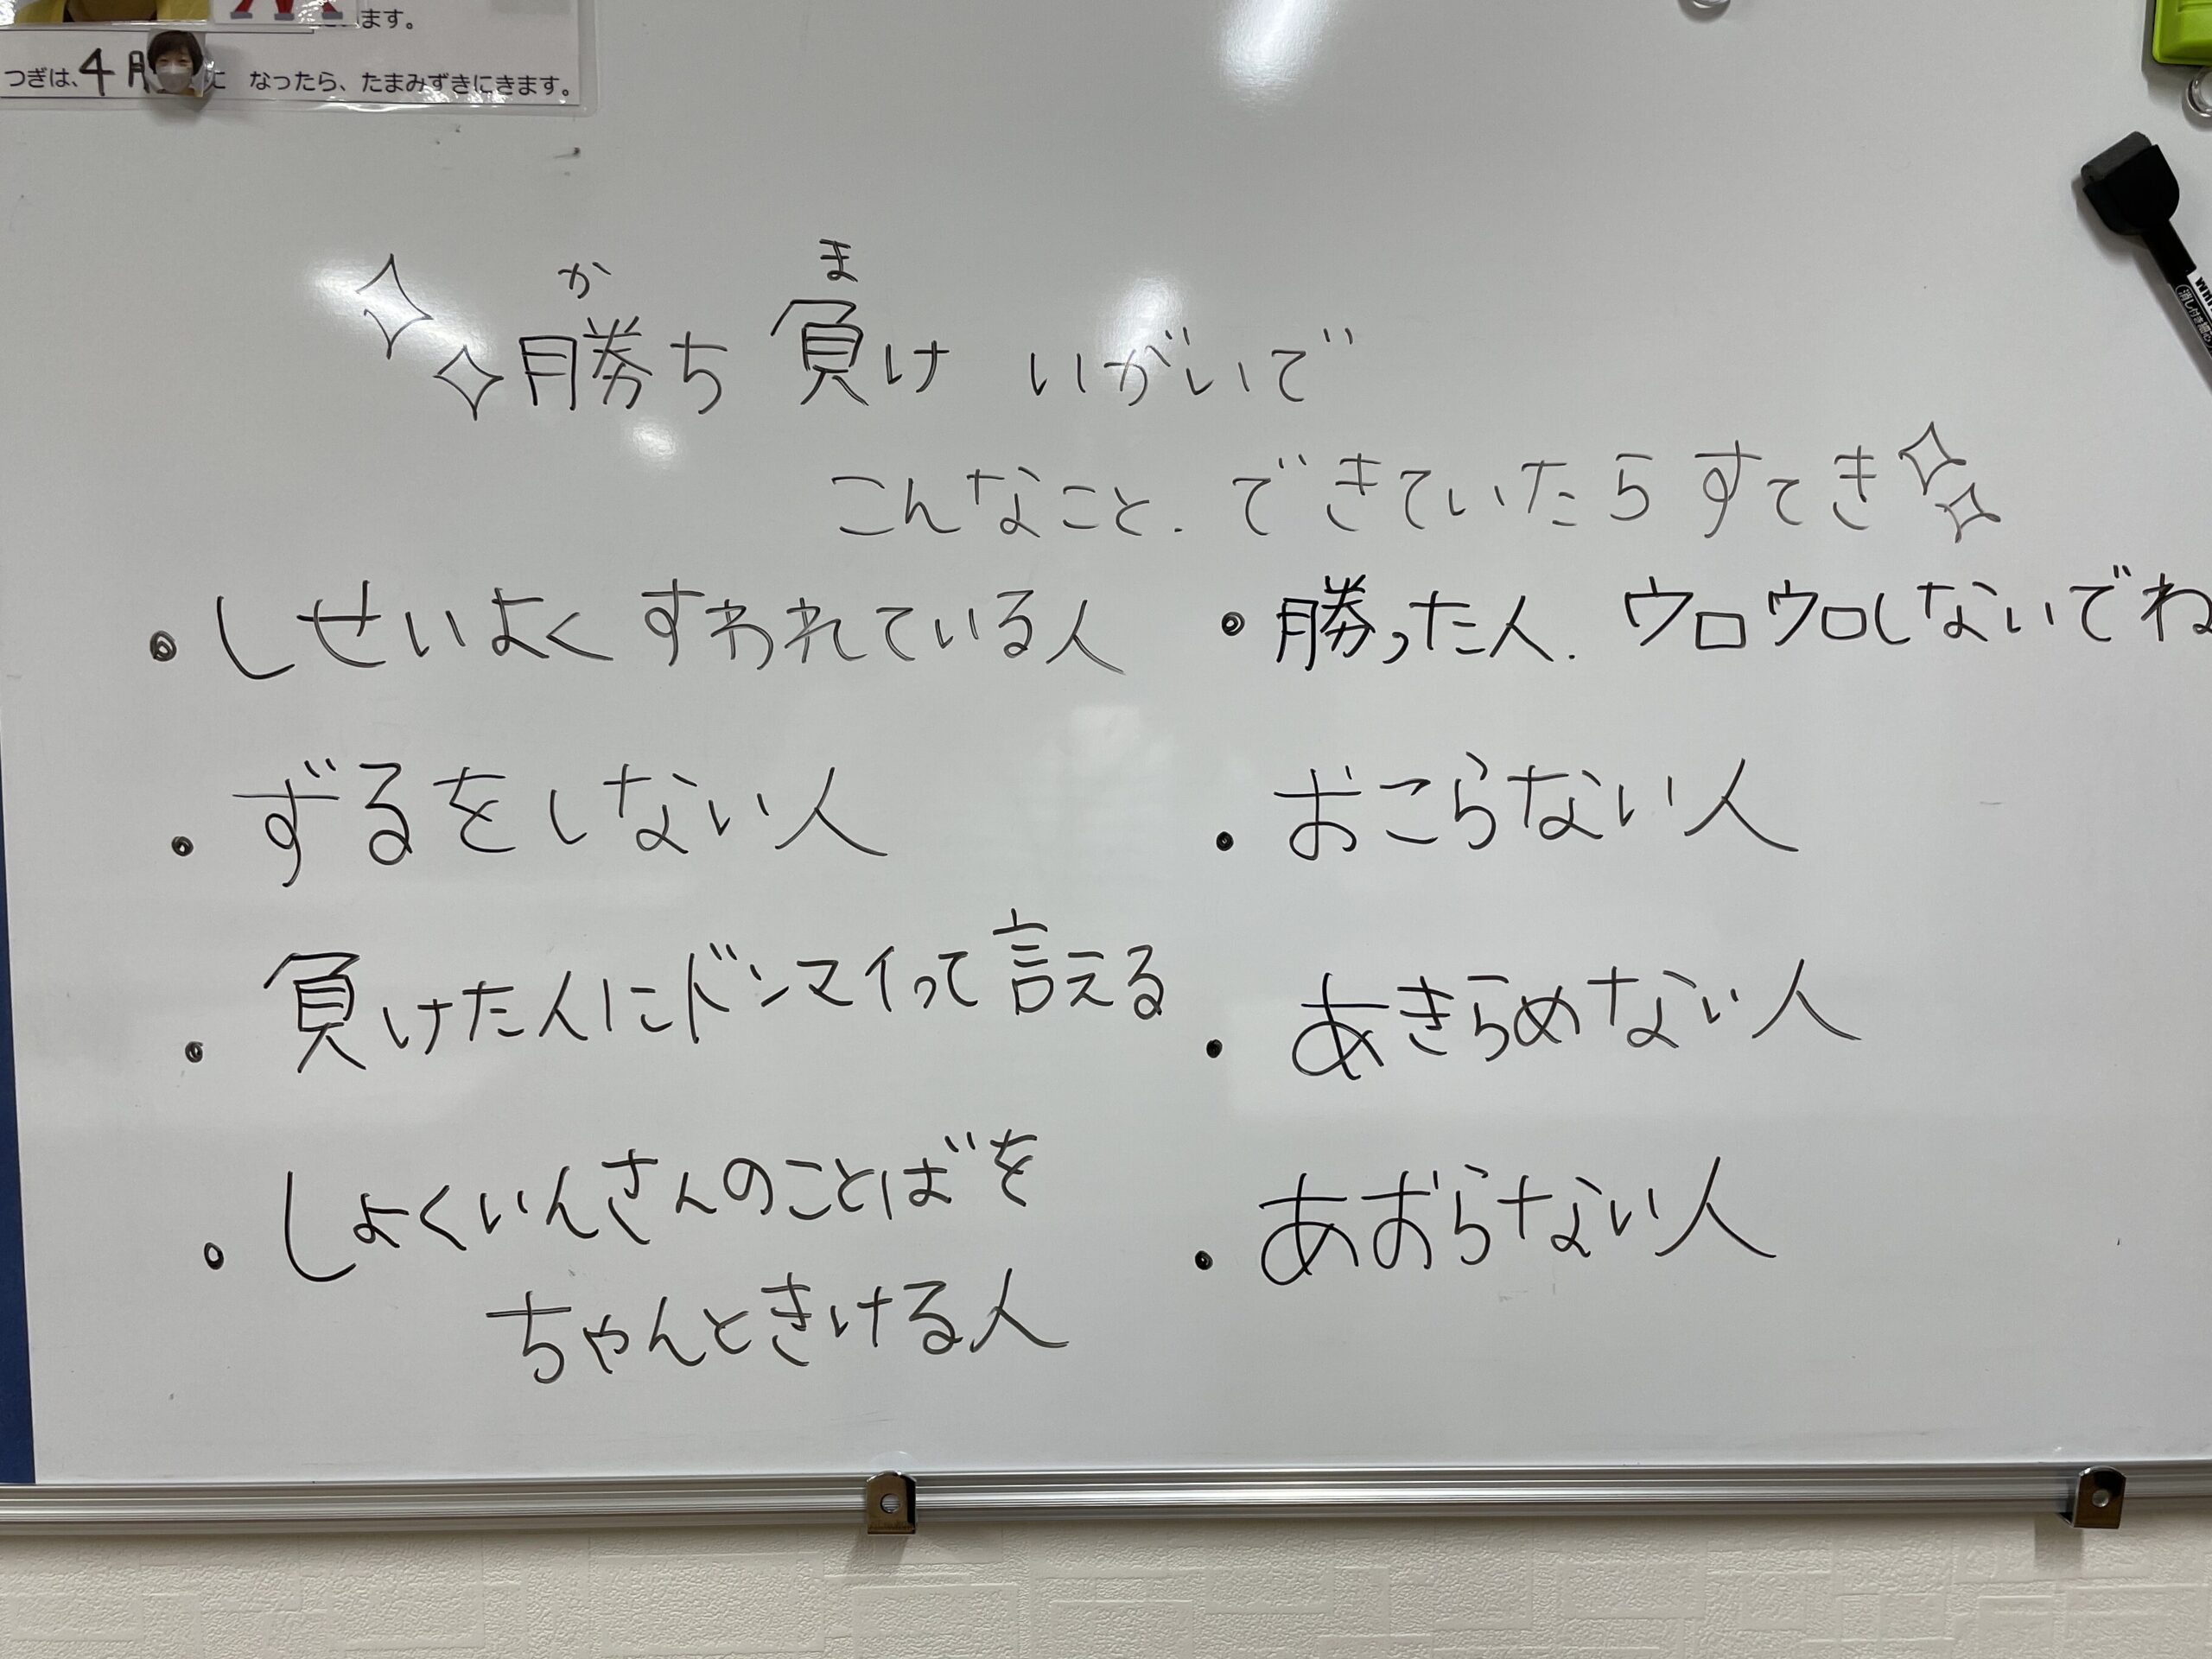 ます。
つぎは、4月 に なったら、たまみずきにきます。
か ま
勝ち 負け いがいで
こんなこと. できていたら すてき
・しせいよく すわれている人
・ずるをしない人
・負けた人にドンマイって言える
・しょくいんさんのことばを
ちゃんときける人
・勝った人. ウロウロしないでね
・おこらない人
・あきらめない人
・あおらない人